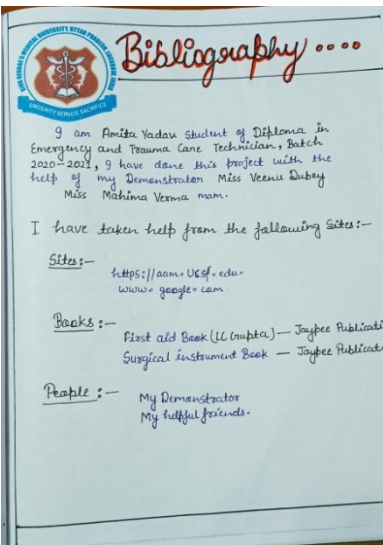 KING GEORGE'S MEDICAL UNIVERSITY UTTAR PRADESH, LUCKNOW INDIA
SINCERITY SERVICE SACRIFICE
Bibliography....
I am Amita Yadav student of Diploma in
Emergency and Trauma Care Technician, Batch
2020-2021, I have done this project with the
help of my Demonstrator Miss Veenu Dubey
Miss Mahima Verma mam.
I have taken help from the following Sites:-
Sites:-
https://aam.UCSf.edu.
www.google.com
Books:-
First aid Book (LC Gupta) - Jaypee Publicati
Surgical instrument Book - Jaypee Publicati
People:-
My Demonstrator
My helpful friends.